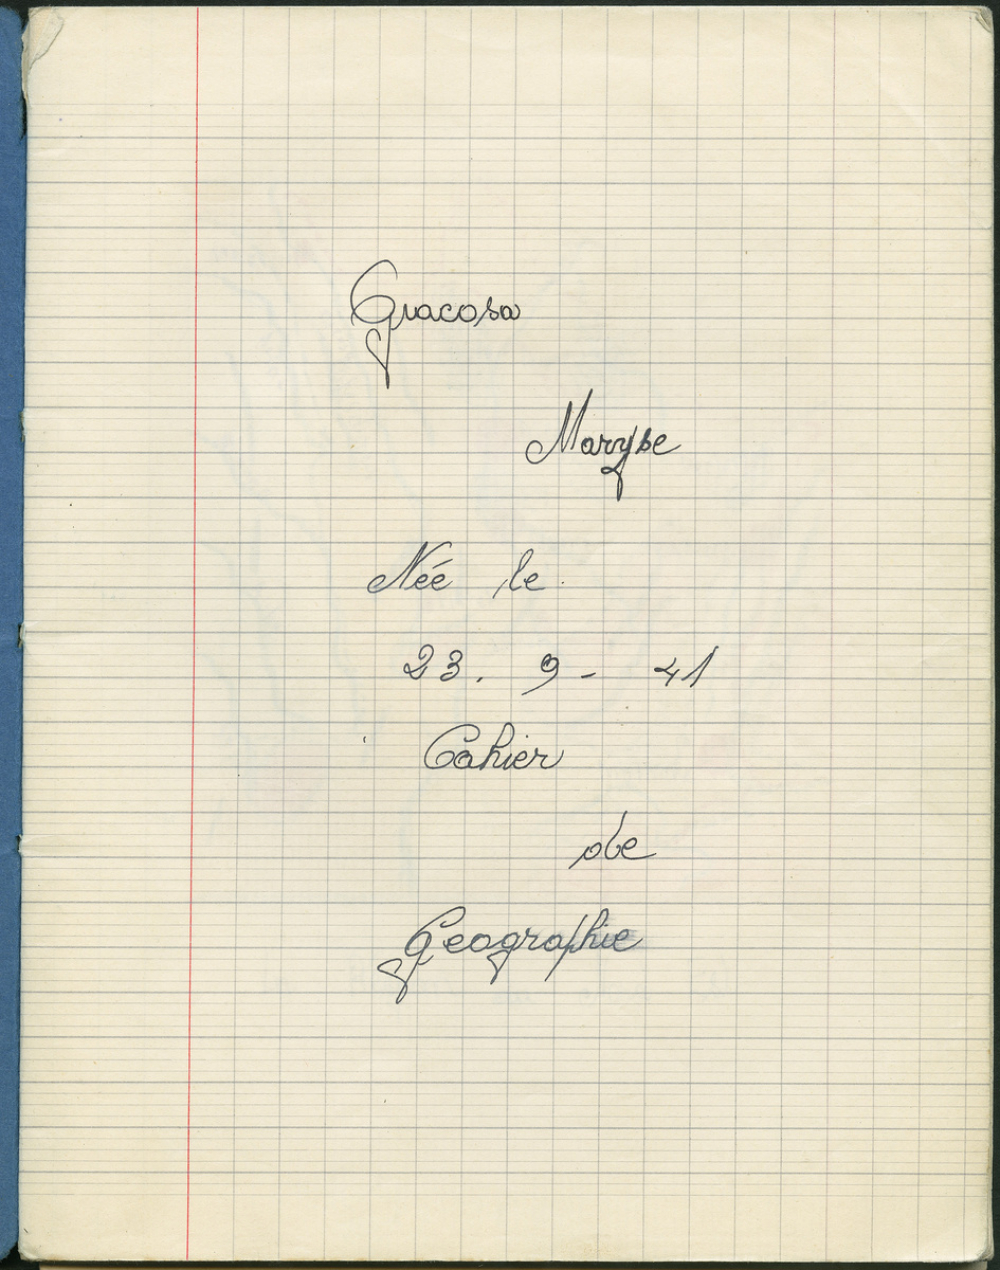 Giacosa
Maryse
Née le
23. 9 - 41
Cahier
de
Geographie